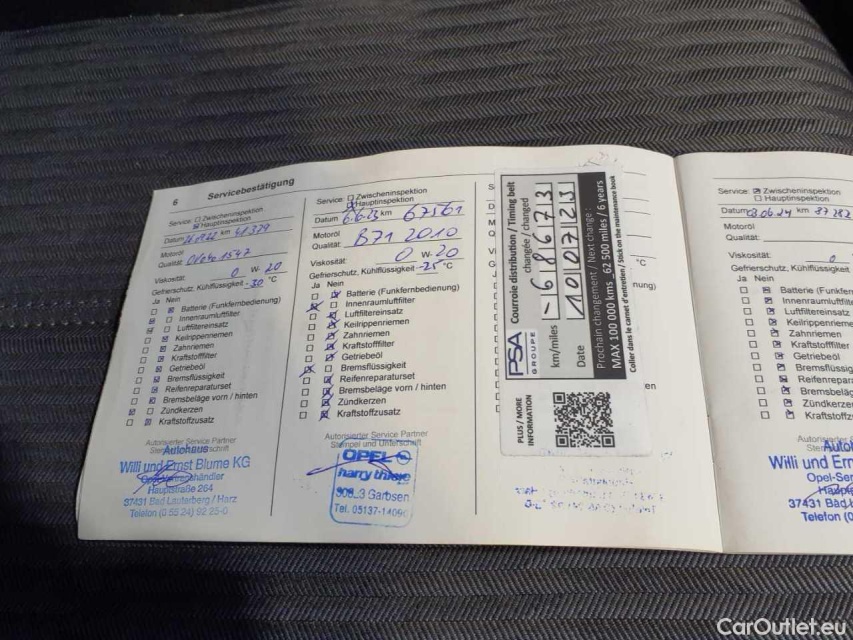 6 Servicebestätigung
Service: Zwischeninspektion
Hauptinspektion
Datum km 41379
Motoröl
Qualität:
Viskosität: 0 W- 20
Gefrierschutz, Kühlflüssigkeit -30 °C
Ja Nein
Batterie (Funkfernbedienung)
Innenraumluftfilter
Luftfiltereinsatz
Keilrippenriemen
Zahnriemen
Kraftstofffilter
Getriebeöl
Bremsflüssigkeit
Reifenreparaturset
Bremsbeläge vorn / hinten
Zündkerzen
Kraftstoffzusatz
Autorisierter Service Partner
Autohaus
Willi und Ernst Blume KG
Hauptstraße 264
37431 Bad Lauterberg / Harz
Telefon (0 55 24) 92 25-0
Service: Zwischeninspektion
Hauptinspektion
Datum 6.6.23 km 67561
Motoröl
Qualität: B71 2010
Viskosität: 0 W- 20
Gefrierschutz, Kühlflüssigkeit -25 °C
Ja Nein
Batterie (Funkfernbedienung)
Innenraumluftfilter
Luftfiltereinsatz
Keilrippenriemen
Zahnriemen
Kraftstofffilter
Getriebeöl
Bremsflüssigkeit
Reifenreparaturset
Bremsbeläge vorn / hinten
Zündkerzen
Kraftstoffzusatz
Autorisierter Service Partner
Stempel und Unterschrift
OPEL
harry thiele
Garbsen
Tel. 05137-1409
°C
nung)
en
PSA
GROUPE
Courroie distribution / Timing belt
changée / changed
km/miles - 68673
Date 100723
Prochain changement / Next change :
MAX 100 000 kms _62 500 miles / 6 years
Coller dans le carnet d'entretien / Stick on the maintenance book
PLUS / MORE
INFORMATION
Service: Zwischeninspektion
Hauptinspektion
Datum 03.06.24 km 87282
Motoröl
Qualität:
Viskosität: 0
Gefrierschutz, Kühlflüssigkeit
Ja Nein
Batterie (Funkfern
Innenraumluftfilter
Luftfiltereinsatz
Keilrippenriemen
Zahnriemen
Kraftstofffilter
Getriebeöl
Bremsflüssig
Reifenrepara
Bremsbeläge
Zündkerzen
Kraftstoffz
Willi und Er
Opel-Ser
37431 Bad
Telefon (0
CarOutlet.eu